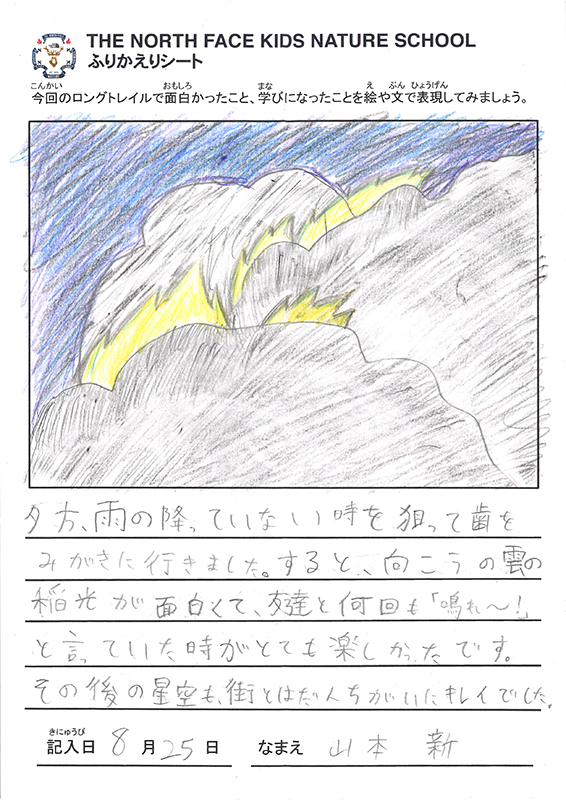 THE NORTH FACE KIDS NATURE SCHOOL
ふりかえりシート
こんかい おもしろ まな え ぶん ひょうげん
今回のロングトレイルで面白かったこと、学びになったことを絵や文で表現してみましょう。
夕方、雨の降っていない時を狙って歯を
みがきに行きました。すると、向こうの雲の
稲光が面白くて、友達と何回も「鳴れ〜!」
と言っていた時がとても楽しかったです。
その後の星空も、街とはだんちがいにキレイでした。
きにゅうび
記入日 8月25日 なまえ 山本 新